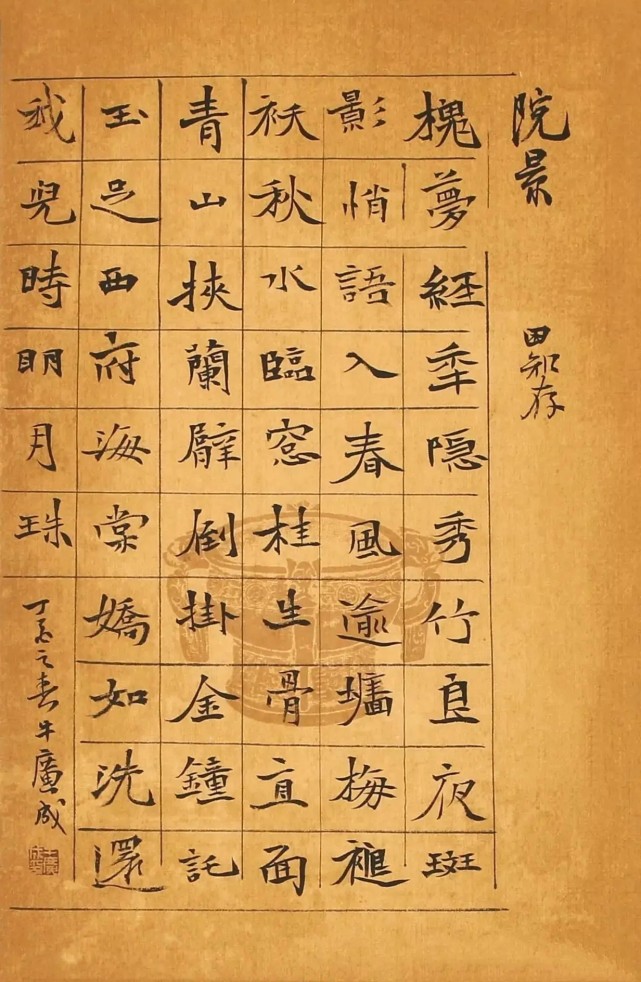 院景
田知存
槐夢經秊隱秀竹良夜斑
影悄語入春風逾墻梅褪
袄秋水臨窓桂生骨直面
青山挾蘭臂倒掛金鐘託
玉足西府海棠嬌如洗還
我兒時明月珠
丁亥之春牛廣成